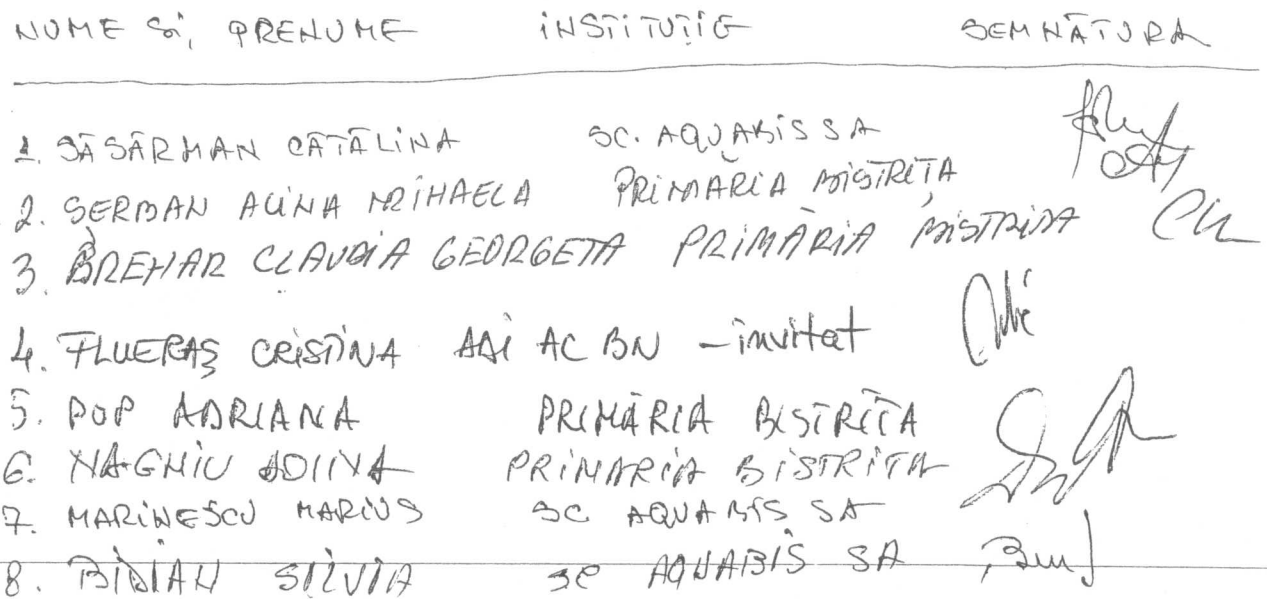 NUME și PRENUME INSTITUȚIE SEMNĂTURA
1. SĂSĂRMAN CĂTĂLINA SC. AQUABIS SA
2. ȘERBAN ALINA MIHAELA PRIMĂRIA BISTRIȚA
3. BREHAR CLAUDIA GEORGETA PRIMĂRIA BISTRIȚA
4. FLUERAȘ CRISTINA ADI AC BN - invitat
5. POP ADRIANA PRIMĂRIA BISTRIȚA
6. NAGHIU ADINA PRIMĂRIA BISTRIȚA
7. MARINESCU MARIUS SC AQUABIS SA
8. BIDIAN SILVIA SC AQUABIS SA